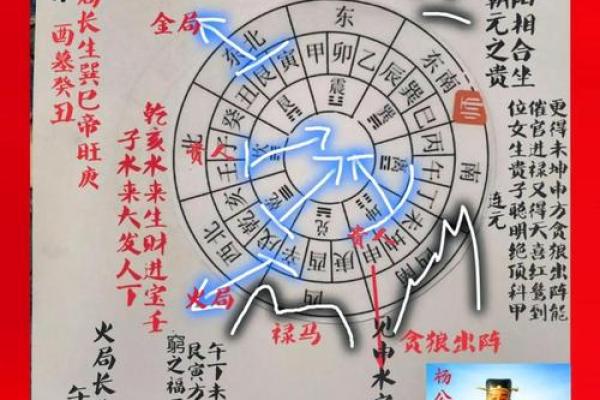 朝元之贵
阳相合坐
更得未坤申方贪狼出阵能
催官进禄又得天喜红鸾到
位女生贵子聪明绝顶科甲
连元
金局
局长生巽巳帝旺庚
酉墓癸丑
乾亥水来生财进宝壬
子水来大发人丁
贵人
贵人
火局
禄马
贪狼出阵
见申水
火局长
午丁未
艮寅方
穷之福
午
杨公
东
东南
南
西南
西
西北
北
东北
甲卯乙辰巽巳丙午丁未坤申庚酉辛戌乾亥壬子癸丑艮寅
震
巽
离
坤
兑
乾
坎
艮